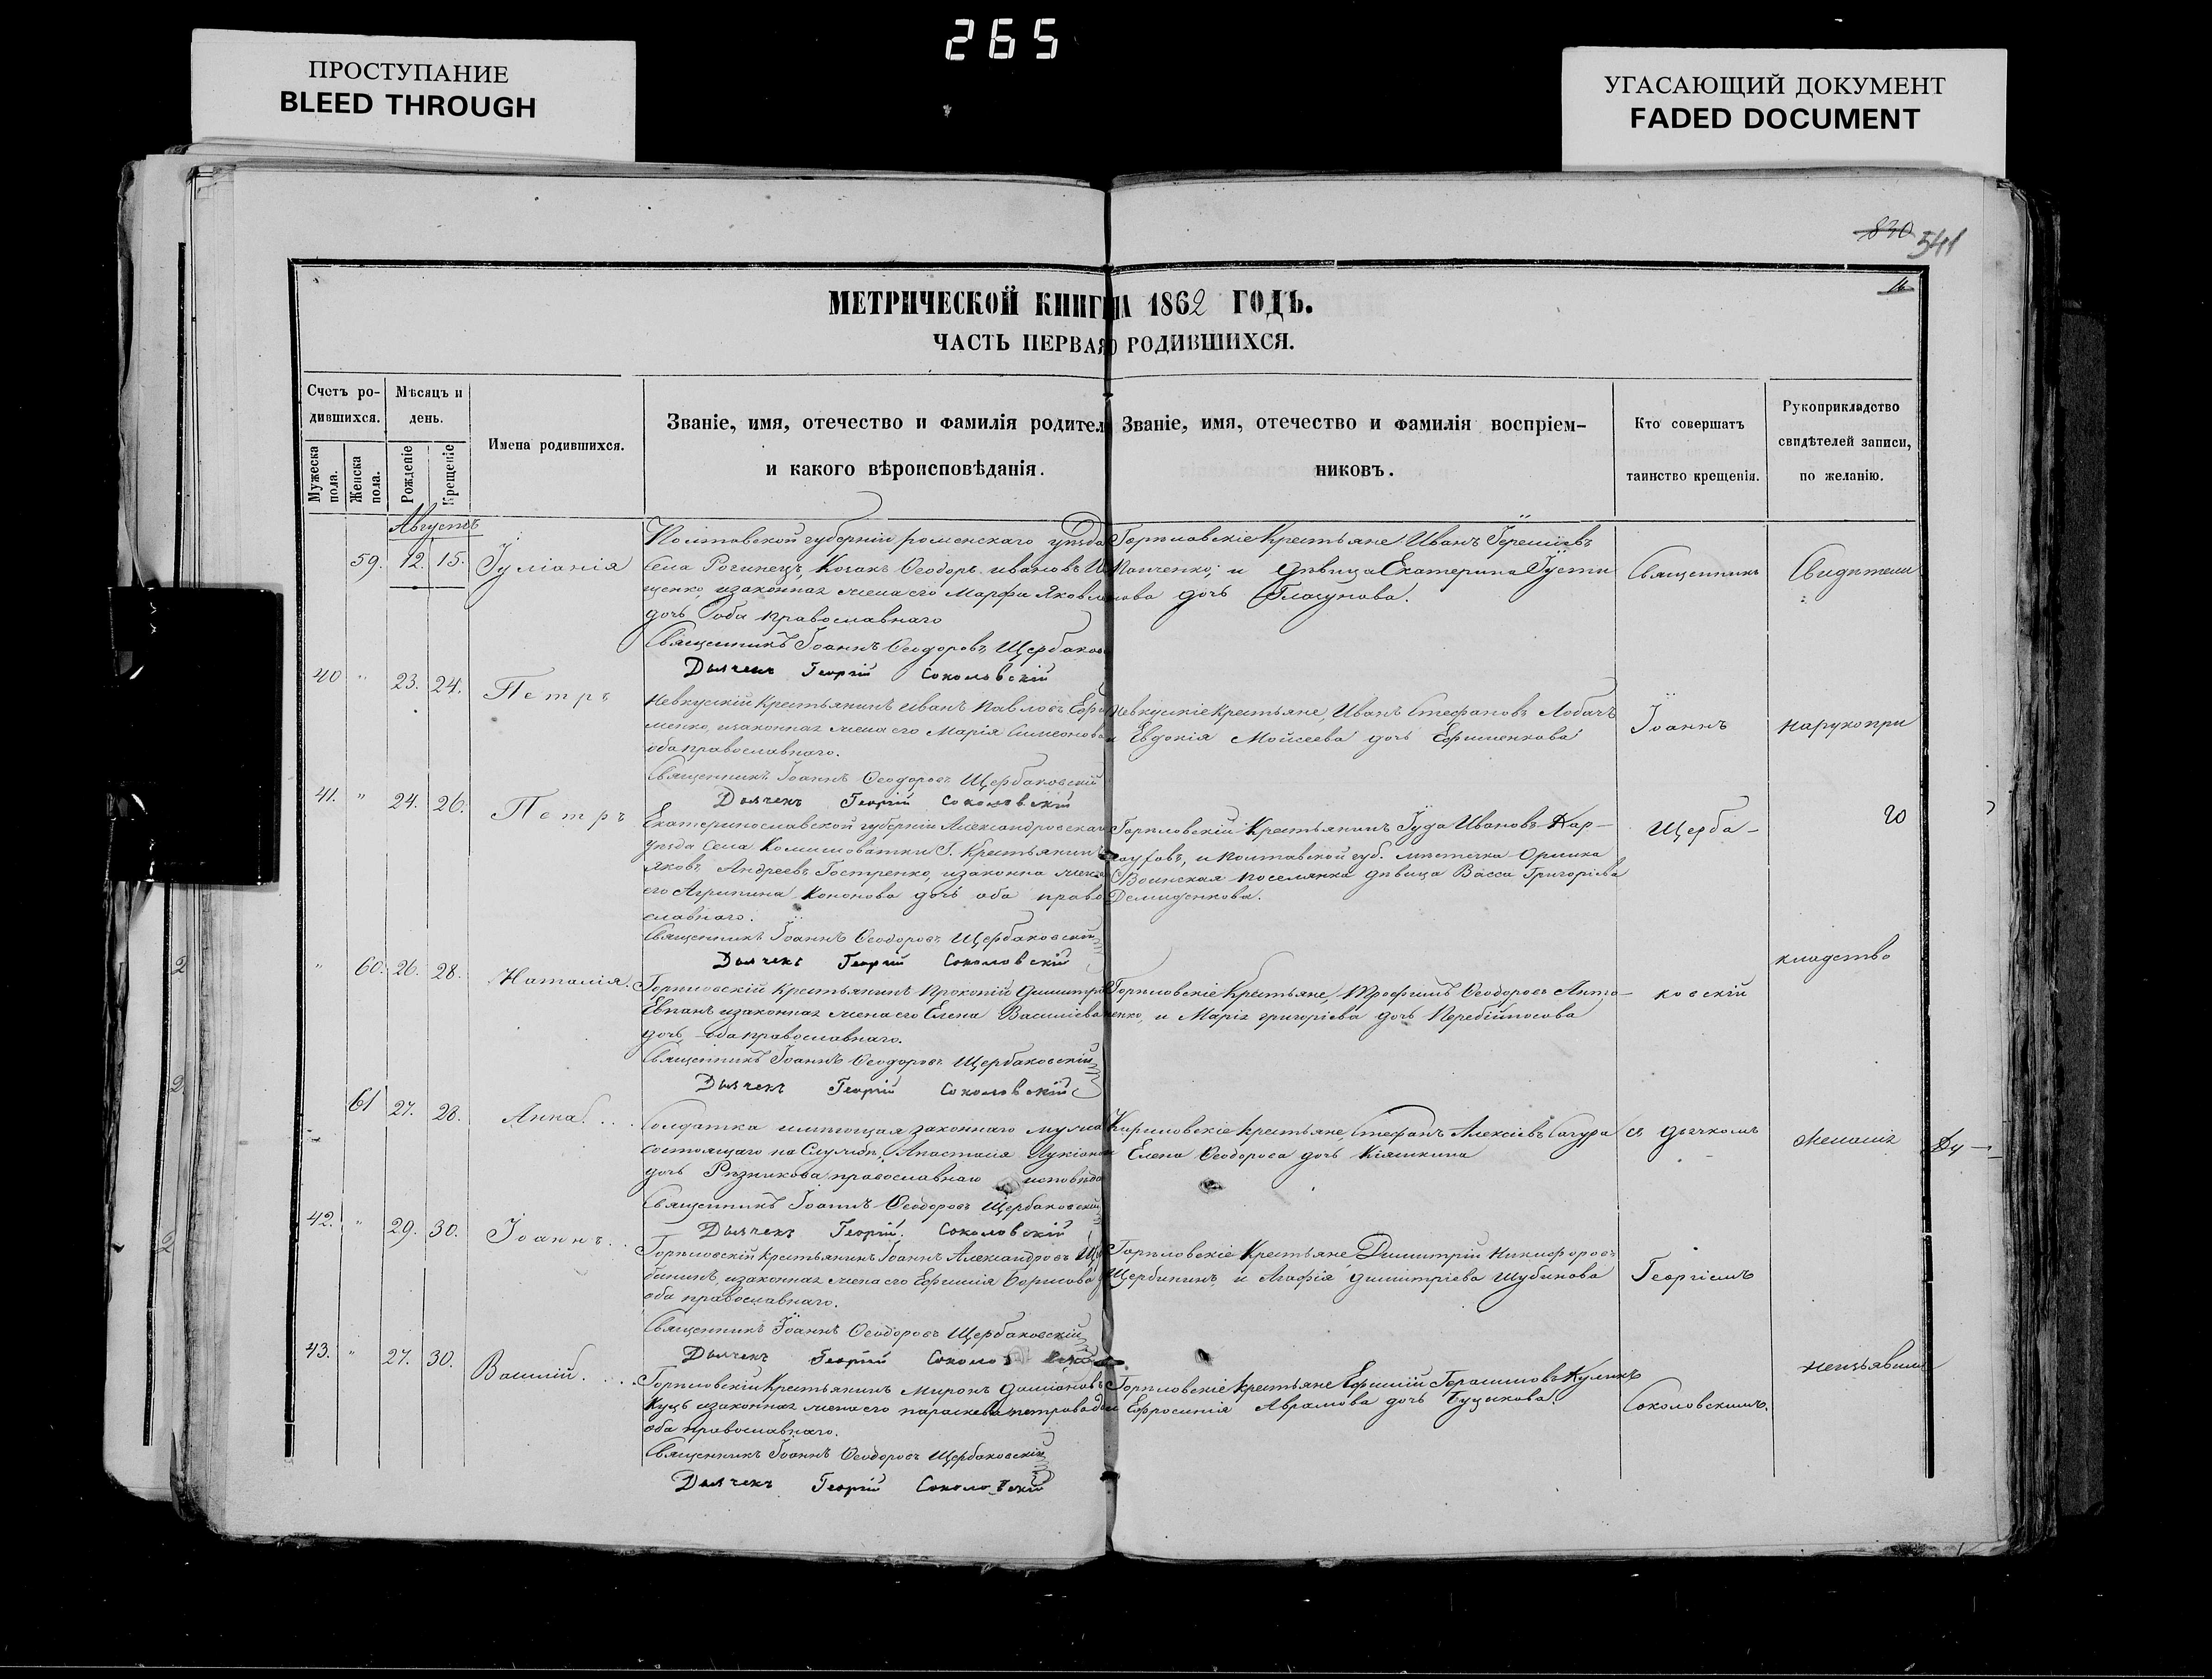 265
ПРОСТУПАНИЕ
BLEED THROUGH
УГАСАЮЩИЙ ДОКУМЕНТ
FADED DOCUMENT
830 541
МЕТРИЧЕСКОЙ КНИГИ НА 1862 ГОДЪ.
ЧАСТЬ ПЕРВАЯ О РОДИВШИХСЯ.
Счетъ ро-
дившихся.
Мужеска пола.
Женска пола.
Мѣсяцъ и
день.
Рожденіе
Крещеніе
Имена родившихся.
Званіе, имя, отечество и фамилія родител
и какого вѣроисповѣданія.
Званіе, имя, отечество и фамилія воспріем-
никовъ.
Кто совершатъ
таинство крещенія.
Рукоприкладство
свидѣтелей записи,
по желанію.
Августъ
59. 12. 15. Іуліанія
Полтавской губерніи роменскаго уѣзда
Села Рогинецъ, Козакъ Ѳеодоръ ивановъ
щенко изаконная жена его Марфа Яковле
дочь оба православнаго
Священникъ Іоаннъ Ѳеодоровъ Щербаков
Дьячекъ Георгій Соколовскій
Горѣловскіе Крестьяне Иванъ
Панченко; и дѣвица Екатерина Іусти
нова дочь Глагунова.
Священникъ
Свидѣтели
40 " 23. 24. Петръ
Невкускій Крестьянинъ иванъ Павловъ Ефи
менко, изаконная жена его Марія Симеонова
оба православнаго.
Священникъ Іоаннъ Ѳеодоровъ Щербаковскій
Дьячекъ Георгій Соколовскій
Невкускіе Крестьяне, Иванъ Стефановъ Лобачъ
и Евдокія Мойсеева дочь Ефименкова
Іоаннъ
нарукопри
41. " 24. 26. Петръ
Екатеринославской губерніи Александровскаго
уѣзда Села Комишоватки Г. Крестьянинъ
Яковъ Андреевъ Гостренко, изаконна жена
его Агрипина Кононова дочь оба право
славнаго.
Священникъ Іоаннъ Ѳеодоровъ Щербаковскій
Дьячекъ Георгій Соколовскій
Горѣловскій Крестьянинъ Іуда Ивановъ Кар-
и Полтавской губ. мѣстечка Оржика
Воинская поселянка дѣвица Васса Григоріева
Демиденкова.
Щерба-
" 60. 26. 28. Наталія.
Горѣловскій Крестьянинъ Прокопій Димитр
Евпанъ изаконная жена его Елена Василіева
дочь оба православнаго.
Священникъ Іоаннъ Ѳеодоровъ Щербаковскій
Дьячекъ Георгій Соколовскій
Горѣловскіе Крестьяне, Трофимъ Ѳеодоровъ Анто-
ненко, и Марія григоріева дочь Перебійносова
ковскій
кладство
61 27. 28. Анна
Солдатка имѣющая законнаго мужа
состоящаго на Службѣ, Анастасія Лукіанов
дочь Рѣзникова православнаго исповѣда
Священникъ Іоаннъ Ѳеодоровъ Щербаковскій
Дьячекъ Георгій Соколовскій
Кириловскіе Крестьяне, Стефанъ Алексіевъ Сагура
и Елена Ѳеодорова дочь Кіяшкина
съ дьячкомъ
желанія
42. " 29. 30. Іоаннъ.
Горѣловскій крестьянинъ Іоаннъ Александровъ Ще
бининъ, изаконная жена его Ефимія Борисова
оба православнаго.
Священникъ Іоаннъ Ѳеодоровъ Щербаковскій
Дьячекъ Георгій Соколовскій
Горѣловскіе Крестьяне, Димитрій Никифоровъ
Щербининъ, и Агафія димитріева Шубинова
Георгіемъ
43. " 27. 30. Василій
Горѣловскій Крестьянинъ Миронъ даміановъ
Куць изаконная жена его параскева петрова до
оба православнаго.
Священникъ Іоаннъ Ѳеодоровъ Щербаковскій
Дьячекъ Георгій Соколовскій
Горѣловскіе крестьяне Ефимій Герасимовъ Куликъ
и Ефросинія Аврамова дочь Буцикова.
Соколовскимъ.
неизъявили